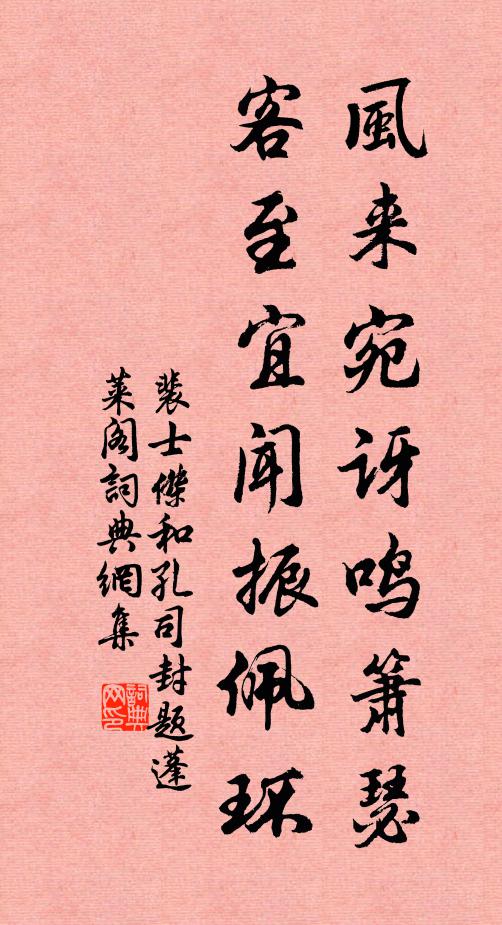 風来宛讶鸣箫瑟
客至宜闻振佩环
裴士傑和孔司封題蓬
莱阁詞典網集
詞典网印